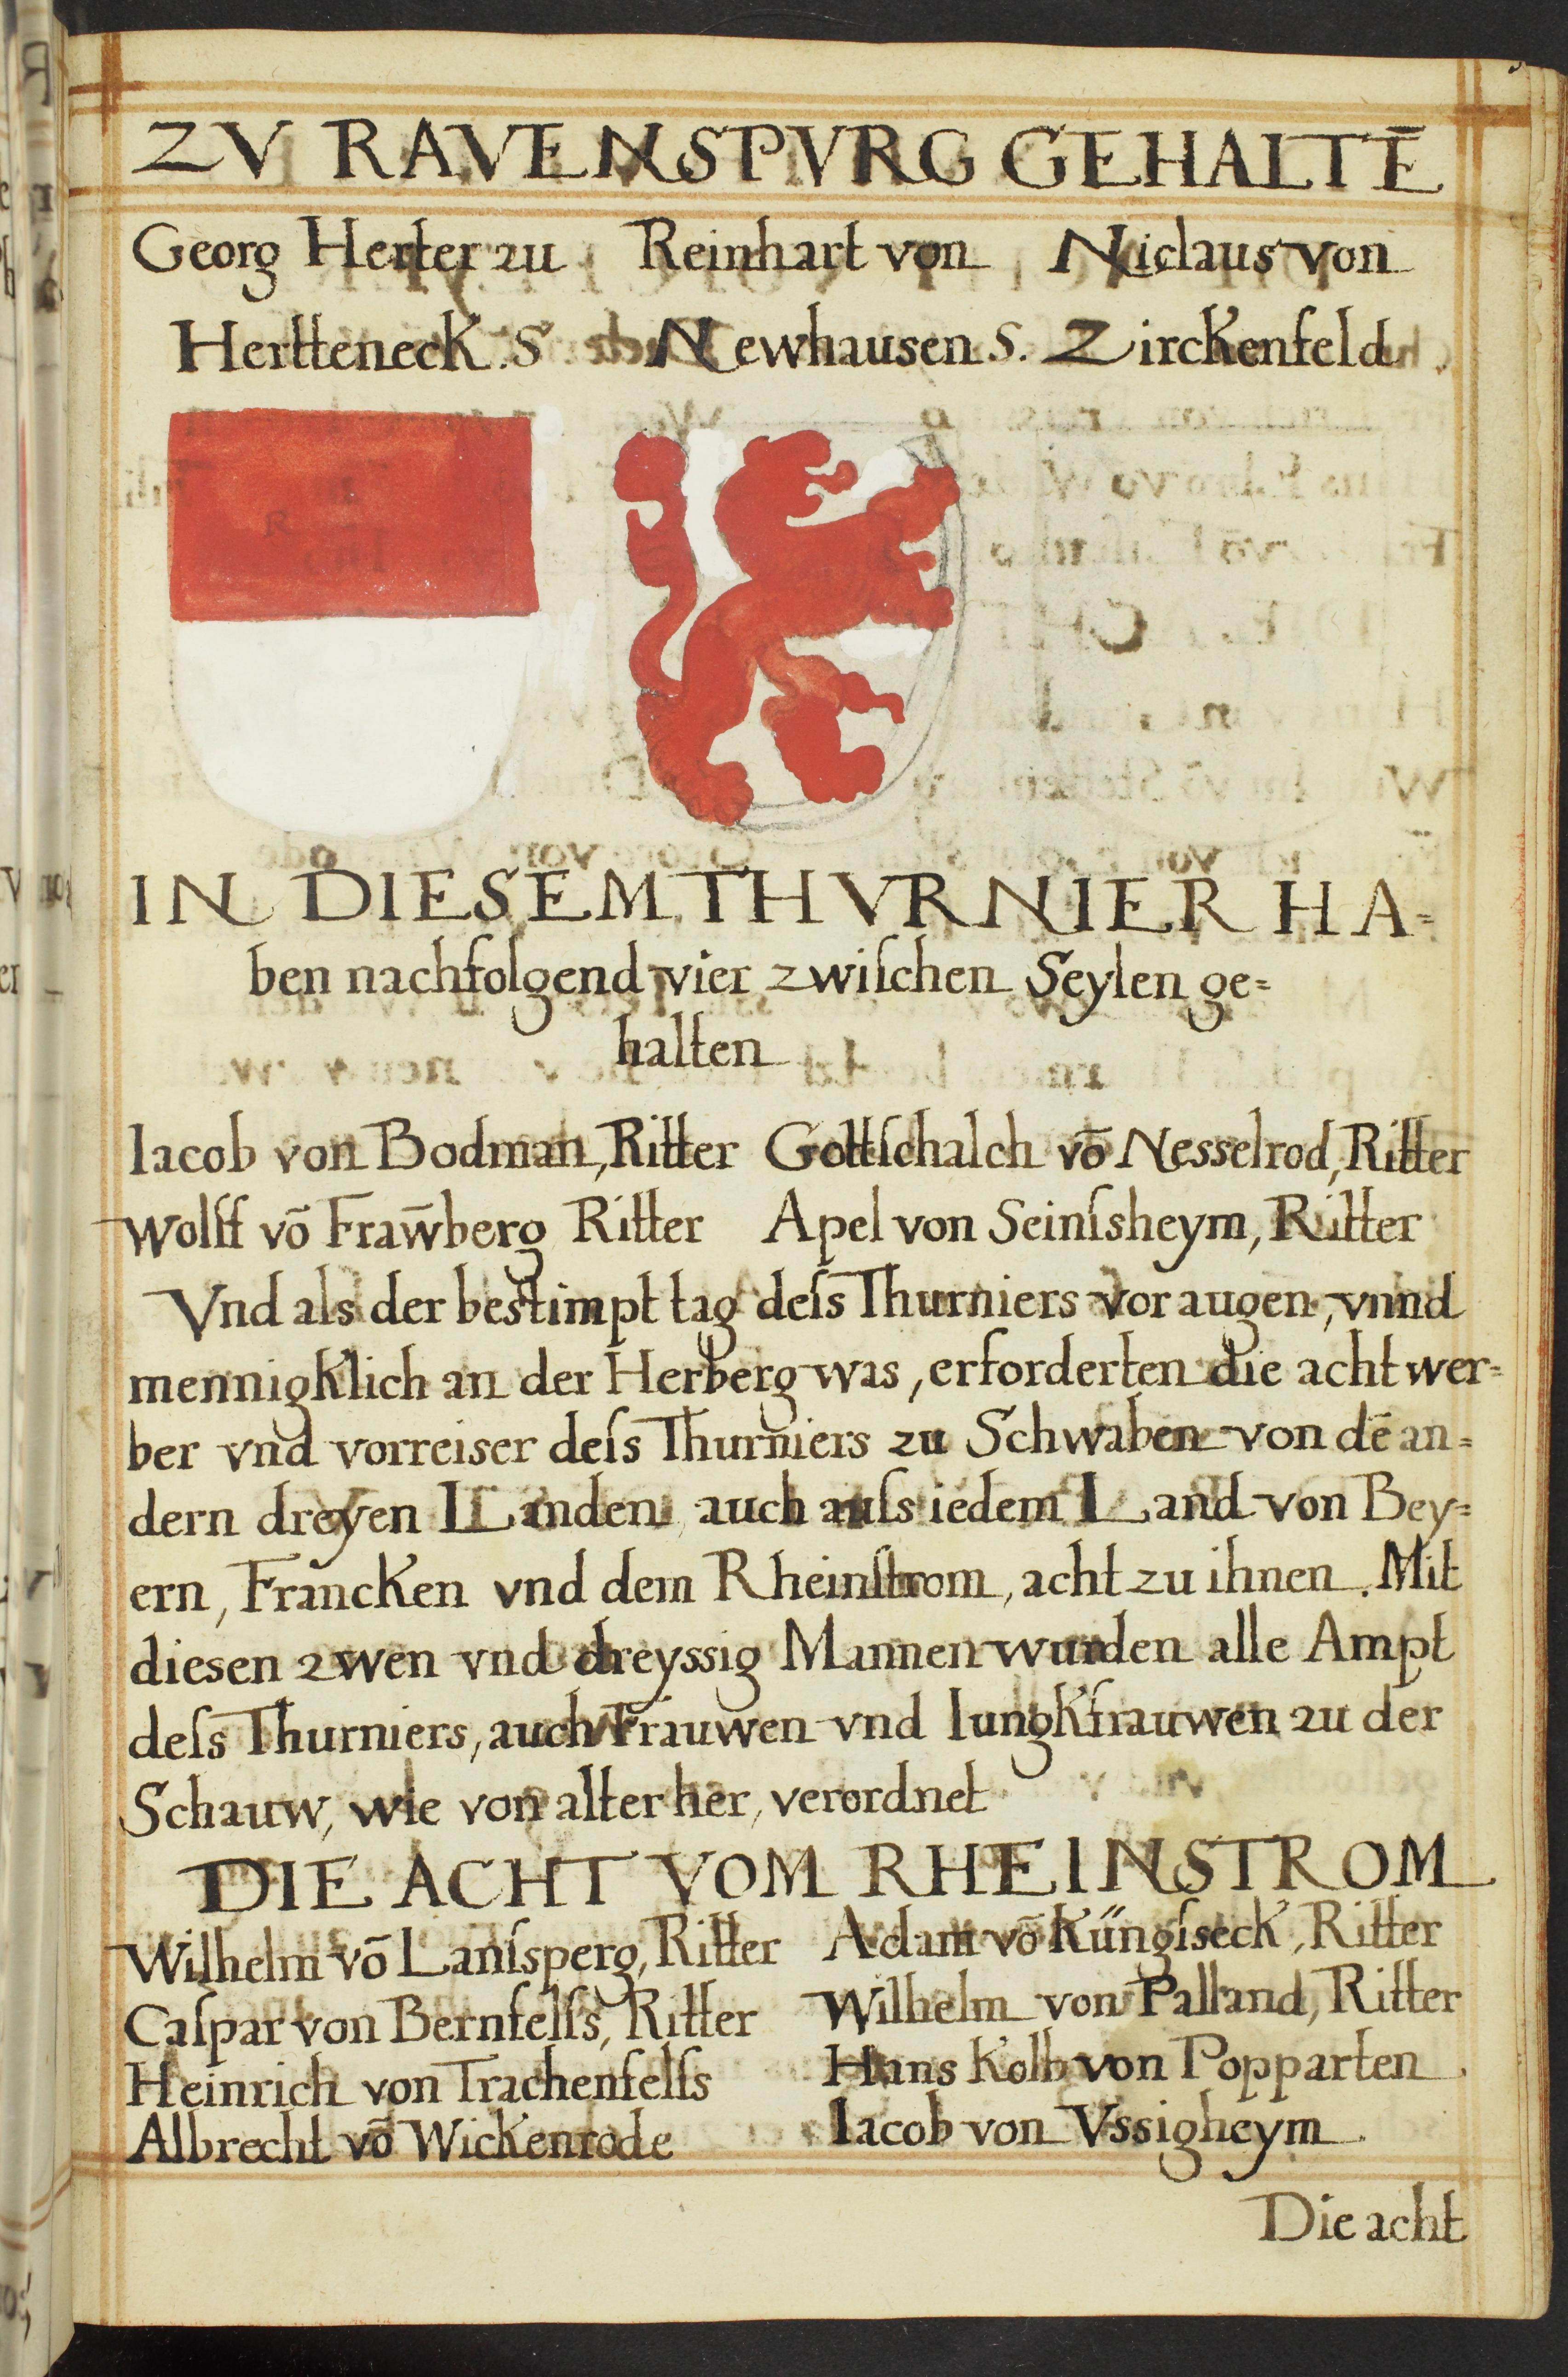 ZV RAVENSPVRG GEHALTĒ
Georg Herter zu Reinhart von Niclaus von
Hertteneck. S Newhausen S. Zirckenfeld
IN DIESEM THVRNIER HA=
ben nachfolgend vier zwiſchen Seylen ge=
halten
Iacob von Bodman, Ritter Gottſchalch vō Nesselrod, Ritter
Wolff vō Fraw̄berg Ritter Apel von Seinſsheym, Ritter
Vnd als der bestimpt tag deſs Thurniers vor augen, vnnd
mennigklich an der Herberg was, erforderten die acht wer=
ber vnd vorreiser deſs Thurniers zu Schwaben von dē an=
dern dreyen Landen auch auſs iedem Land von Bey=
ern, Francken vnd dem Rheinſtrom, acht zu ihnen. Mit
diesen zwen vnd dreyssig Mannen wurden alle Ampt
deſs Thurniers, auch Frauwen vnd Iungkfrauwen zu der
Schauw, wie von alter her, verordnet
DIE ACHT VOM RHEINSTROM
Wilhelm vō Lanſsperg, Ritter Adam vō Küngſseck, Ritter
Caſpar von Bernfelſs, Ritter Wilhelm von Palland, Ritter
Heinrich von Trachenfelſs Hans Kolb von Popparten
Albrecht vō Wickenrode Iacob von Vssigheym
Die acht